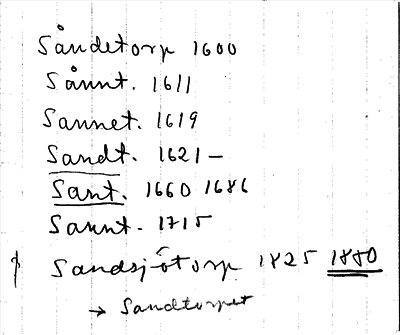 Såndetorp 1600
Sånnt. 1611
Sannet. 1619
Sandt. 1621 –
Sant. 1660 1686
Sannt. 1715
Sandsjötorp 1825 1880
→ Sandtorpet